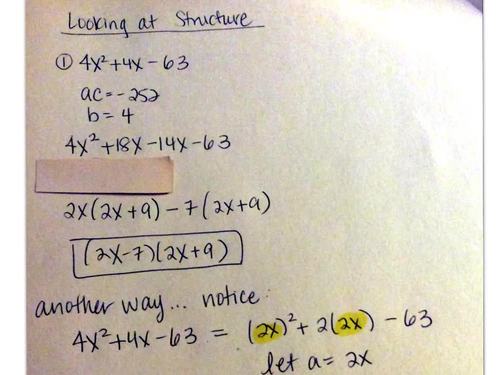 Looking at Structure
① 4x²+4x-63
ac=-252
b=4
4x²+18x-14x-63
2x(2x+9)-7(2x+9)
(2x-7)(2x+9)
another way... notice:
4x²+4x-63 = (2x)²+2(2x)-63
let a=2x